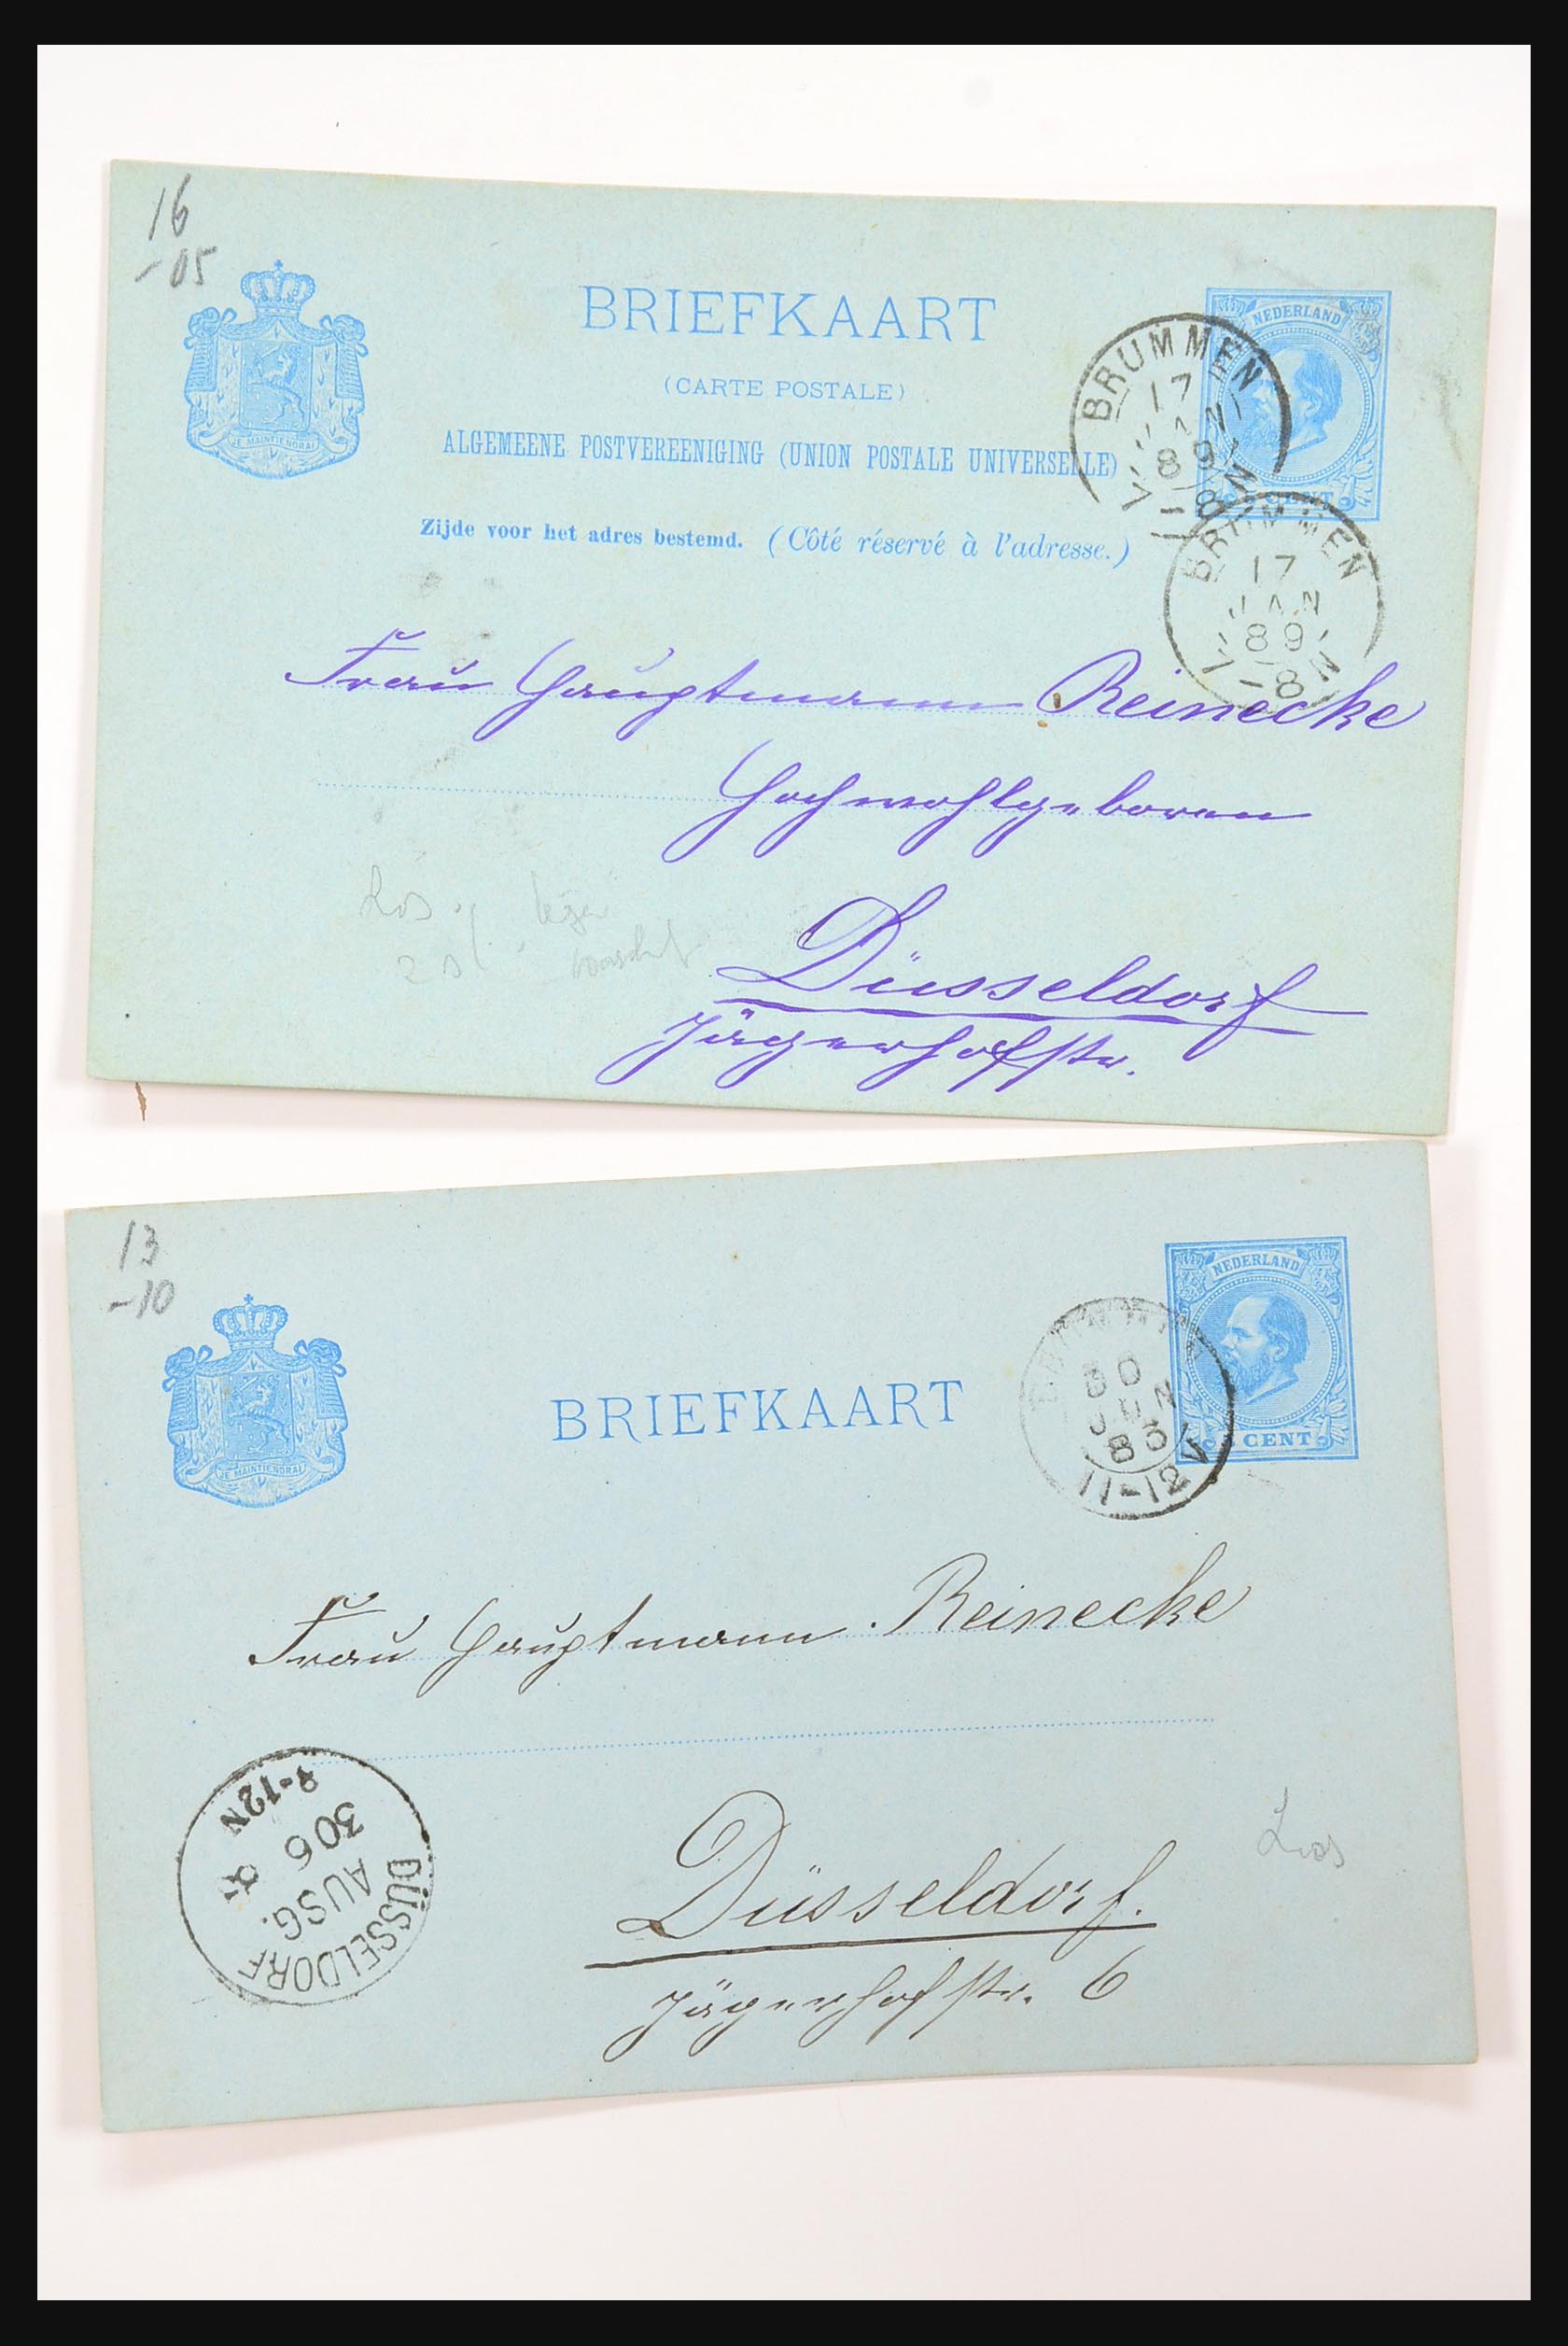 16
-05
JE MAINTIENDRAI
BRIEFKAART
(CARTE POSTALE)
ALGEMEENE POSTVEREENIGING (UNION POSTALE UNIVERSELLE)
Zijde voor het adres bestemd. (Côté réservé à l'adresse.)
NEDERLAND
CENT
BRUMMEN
17
JAN
89
7-8N
BRUMMEN
17
JAN
89
7-8N
Frau Hauptmann Reinecke
Hochwohlgeboren
Los
Düsseldorf
Jägerhofstr.
13
-10
JE MAINTIENDRAI
BRIEFKAART
NEDERLAND
CENT
30
JUN
11-12V
Frau Hauptmann Reinecke
DÜSSELDORF
AUSG.
30 6
8-12N
Düsseldorf.
Los
Jägerhofstr. 6